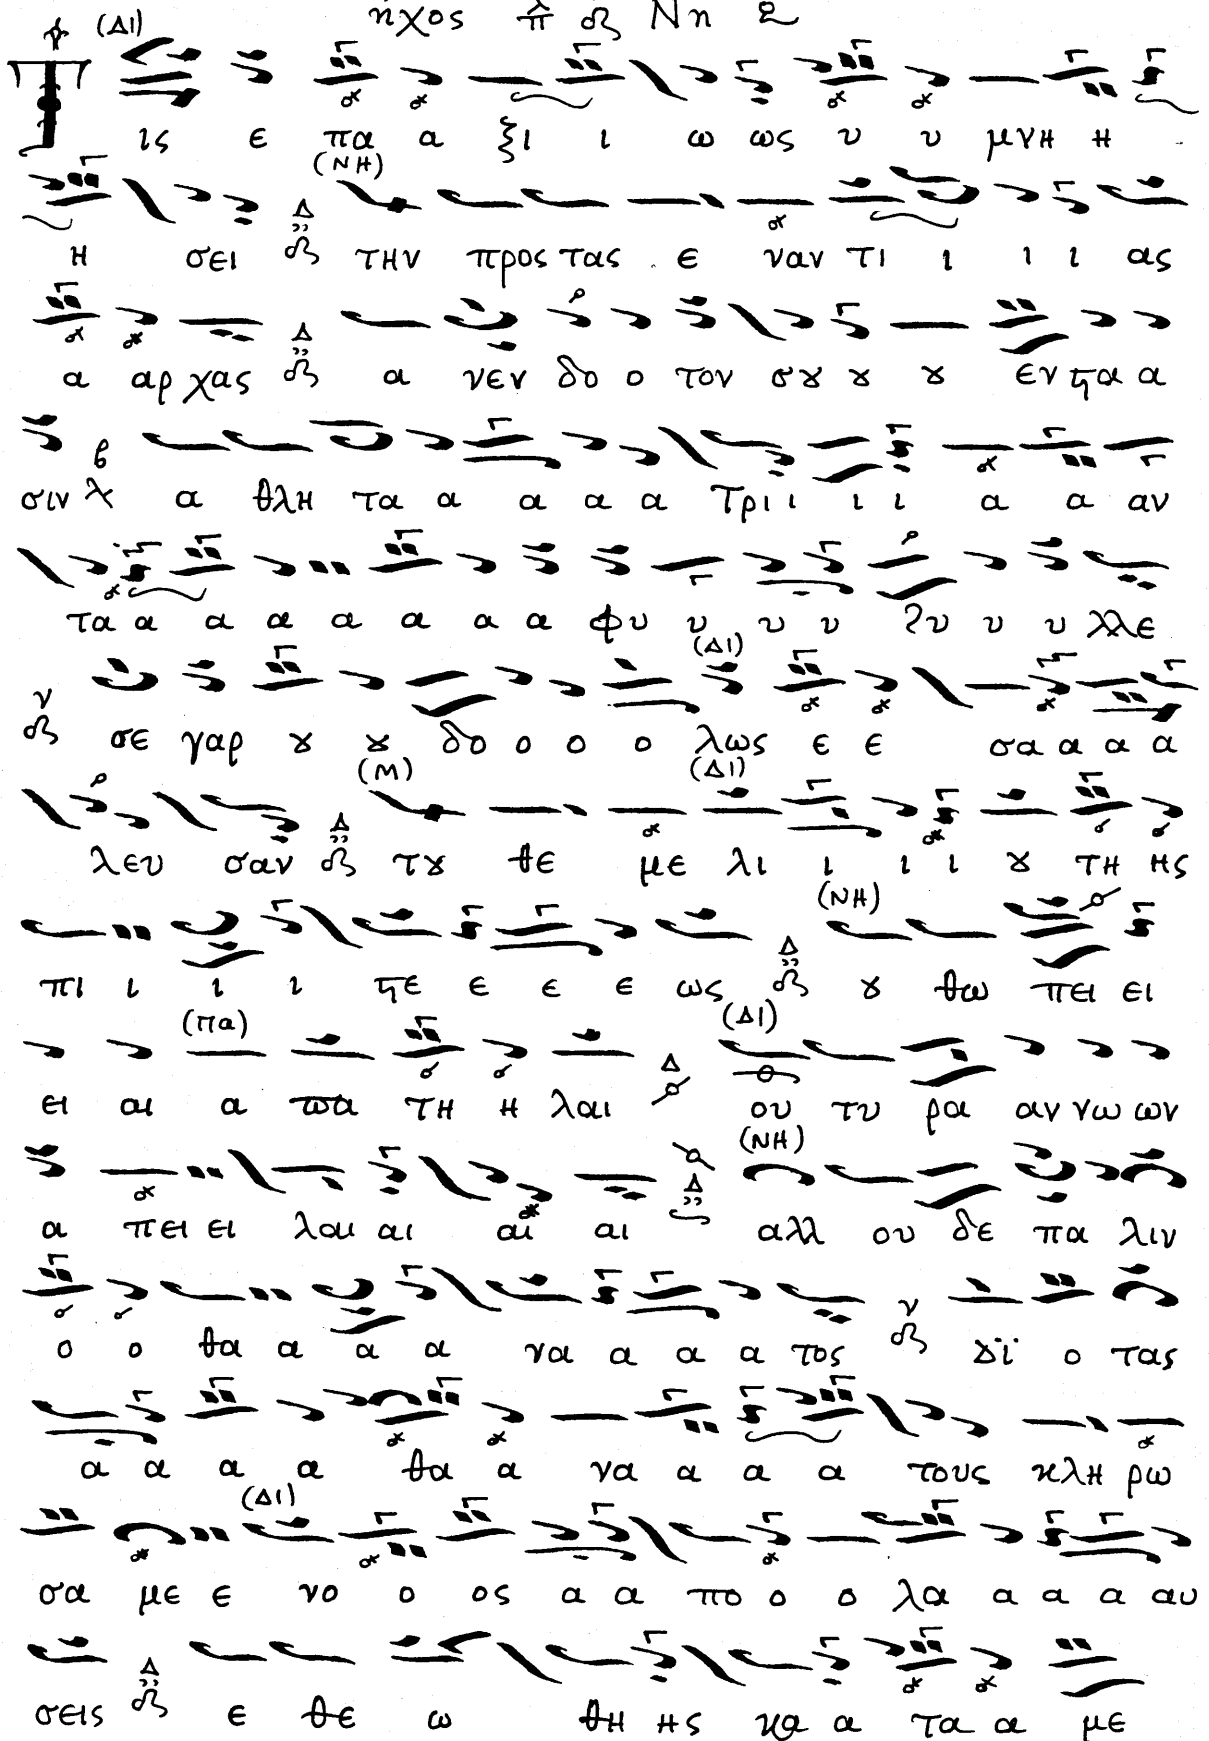 (ΔΙ) ηχος π λ Νη
Τ ις ε πα α ξι ι ω ως υ υ μνη η
(ΝΗ)
η σει Δ την προς τας ε ναν τι ι ι ι ας
α αρ χας Δ α νεν δο ο τον σȣ ȣ ȣ εν ϛα α
σιν β α θλη τα α α α α Τρι ι ι ι α α αν
τα α α α α α α α φυ υ υ υ ζυ υ υ λλε
(ΔΙ)
ν σε γαρ ȣ ȣ δο ο ο ο λως ε ε σα α α α
(Μ) (ΔΙ)
λευ σαν Δ τȣ θε με λι ι ι ι ȣ τη ης
(ΝΗ)
πι ι ι ι ϛε ε ε ε ως Δ ȣ θω πει ει
(Πα) (ΔΙ)
ει αι α πα τη η λαι Δ ου τυ ρα αν νω ων
(ΝΗ)
α πει ει λαι αι αι αι Δ αλλ ου δε πα λιν
ο ο θα α α α να α α α τος ν ȣϊ ο τας
α α α α θα α να α α α τους κλη ρω
(ΔΙ)
σα με ε νο ο ος α α πο ο ο λα α α α αυ
σεις Δ ε θε ω θη ης κα α τα α με